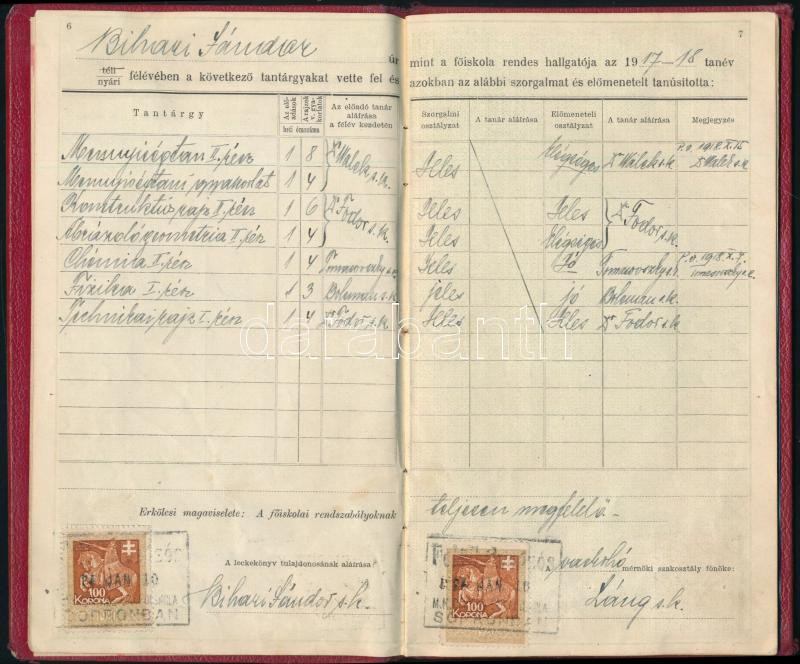 6
Bihari Sándor úr
téli
nyári félévében a következő tantárgyakat vette fel és
Tantárgy
Az elő-
adások
A rajzok
v. gya-
korlatok
heti óraszáma
Az előadó tanár
aláírása
a félév kezdetén
Mennyiségtan II. rész 1 8 Dr Walek s.k.
Mennyiségtani gyakorlat 1 4
Konstruktív rajz II. rész 1 6 Dr Fodor s.k.
Ábrázoló geometria II. rész 1 4
Chémia II. rész 1 4
Fizika I. rész 1 3 Boleman s.k.
Technikai rajz I. rész 1 4 Dr Fodor s.k.
Erkölcsi magaviselete: A főiskolai rendszabályoknak
A leckekönyv tulajdonosának aláírása
Bihari Sándor s.k.
100
KORONA
JAN
SOPRONBAN
7
mint a főiskola rendes hallgatója az 1917-18 tanév
azokban az alábbi szorgalmat és előmenetelt tanúsította:
Szorgalmi
osztályzat
A tanár aláírása
Előmeneteli
osztályzat
A tanár aláírása
Megjegyzés
Jeles Elégséges Dr Walek s.k. P.o. 1918.X.15 Dr Walek s.k.
Jeles Jeles Dr Fodor s.k.
Jeles Elégséges
Jeles Jó P.o. 1918.X.
jeles jó Boleman s.k.
Jeles Jeles Dr Fodor s.k.
teljesen megfelelő.
vaskohó mérnöki szakosztály főnöke:
Láng s.k.
100
KORONA
darabanth